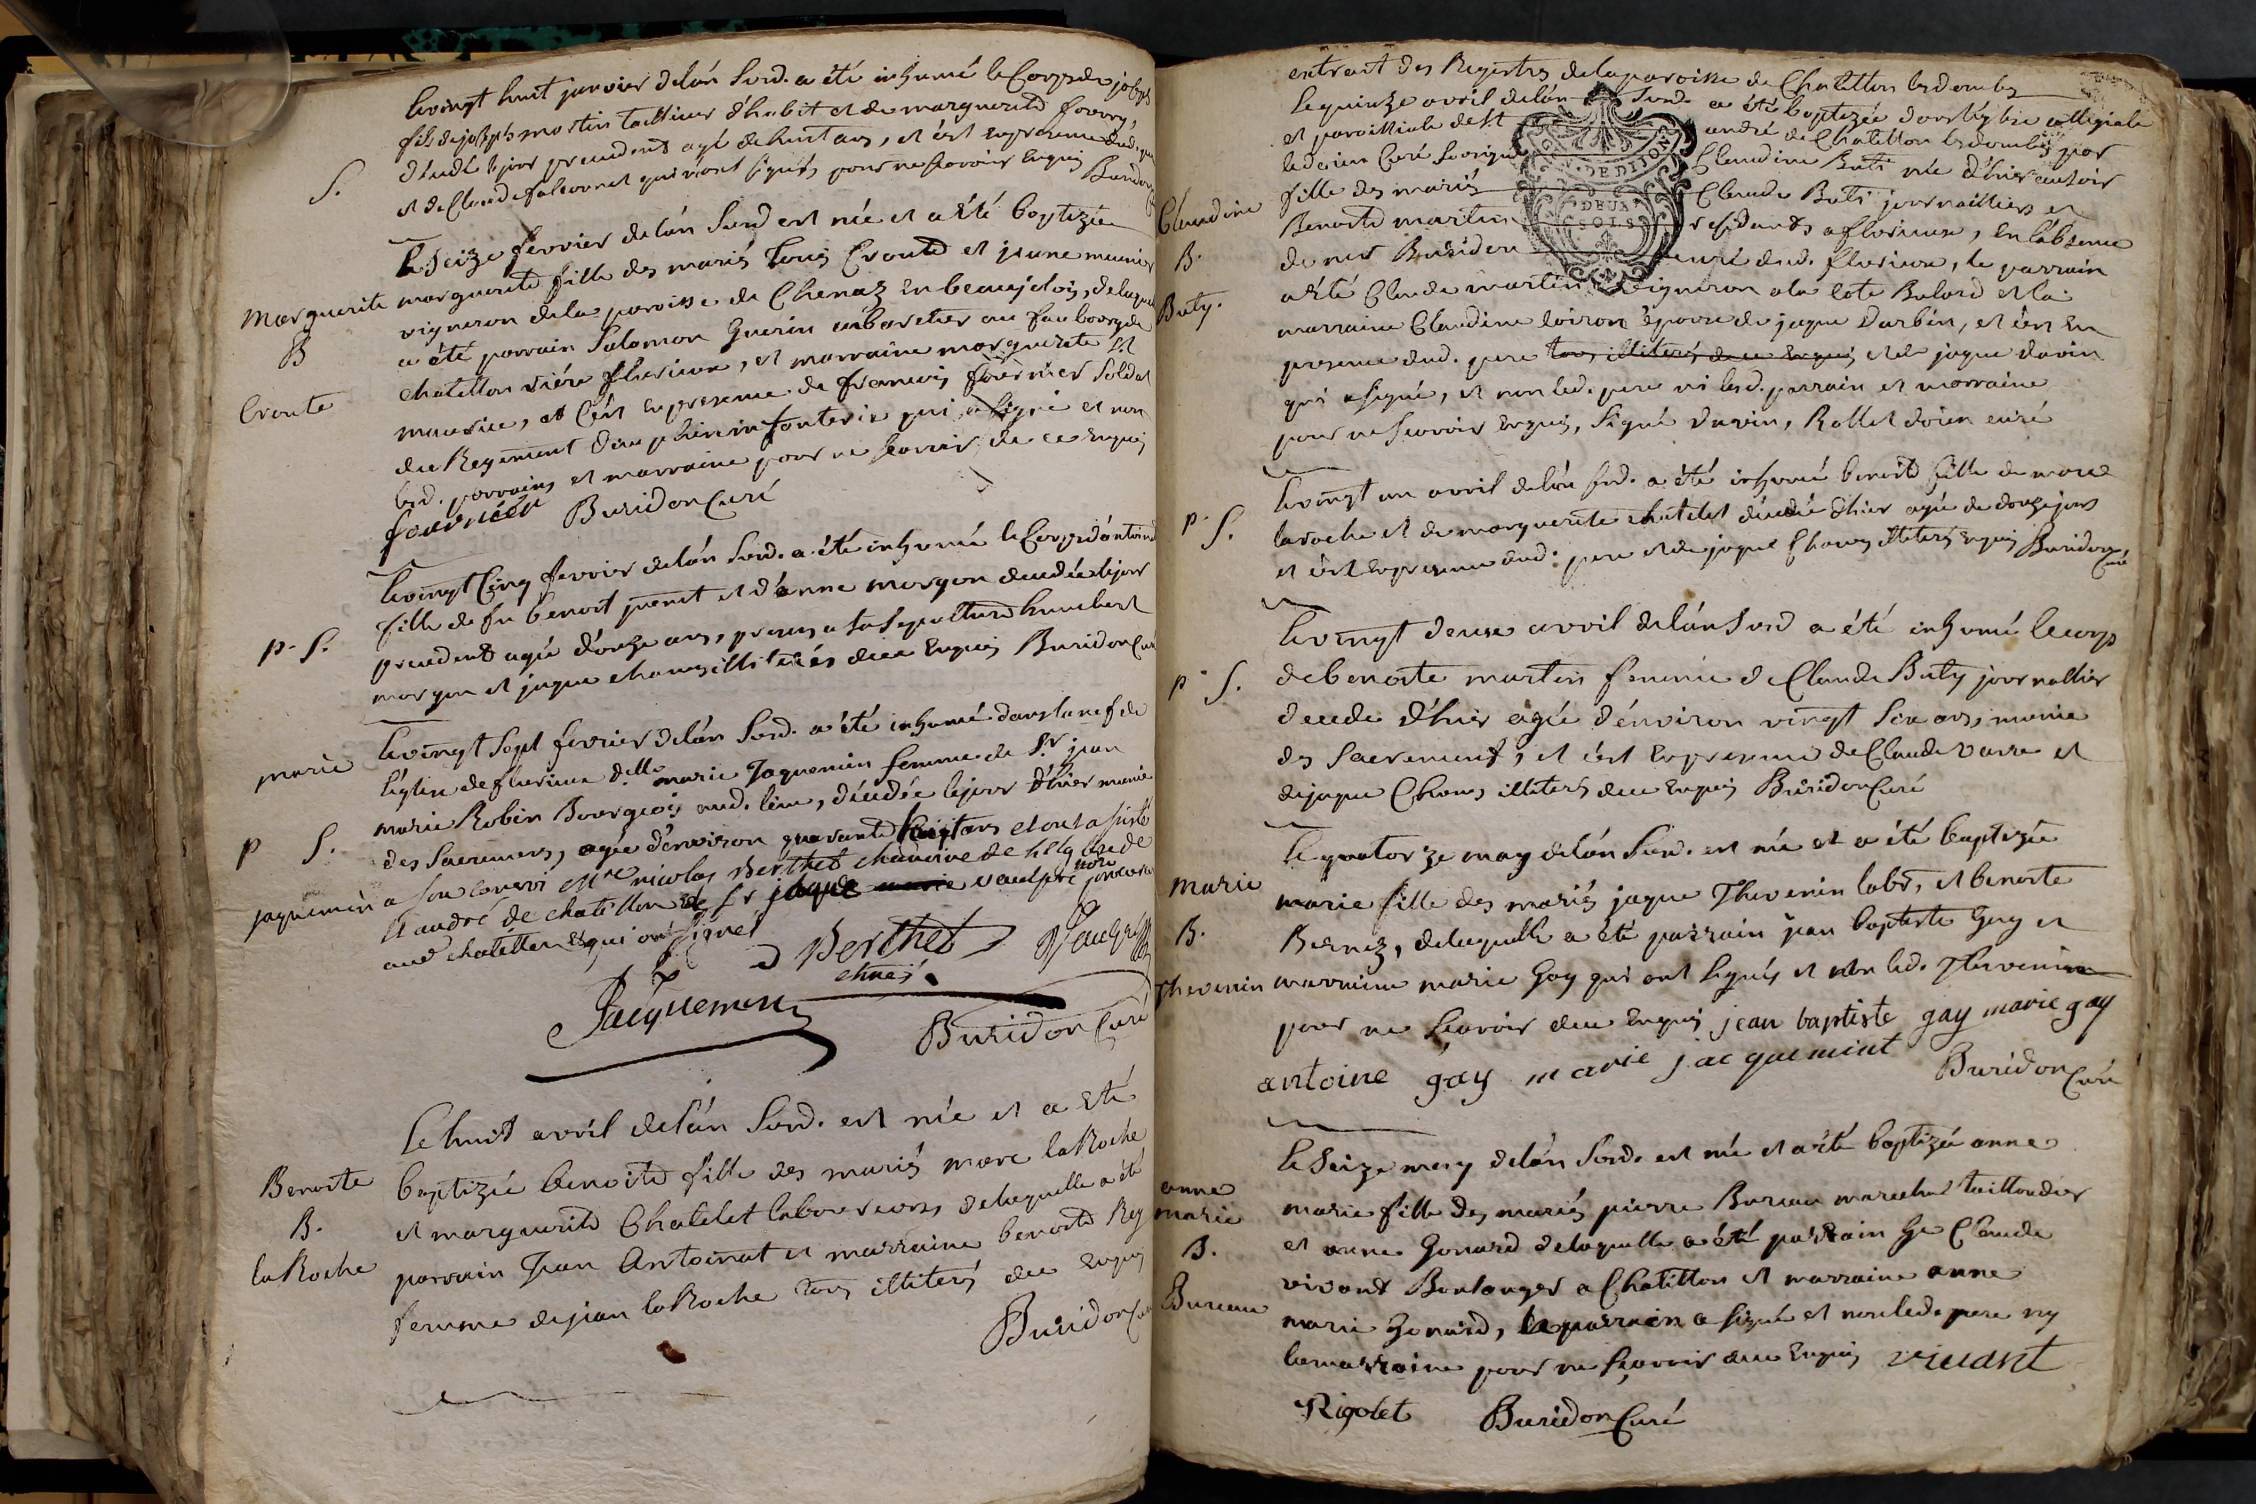 le vingt huit janvier de l'an susd. a été inhumé le Corps de joseph
fils de joseph martin tailleur d'habit et de marguerite
décédé le jour precedent agé de huit ans, et c'est en presence dud. pere
S.
et de Claude falconnet qui n'ont signés pour ne sçavoir enquis Buridon
le seize fevrier de l'an susd est née et a été baptizée
Marguerite
marguerite fille des mariés Louis Croute et jeane meunier
B
vigneron de la paroisse de Chenas en beaujolois, de laquelle
a été parrain Salomon Guerin cabaretier au faubourg de
Croute
chatillon riére fleurieux, et marraine marguerite
maurice, et c'est en presence de francois fournier soldat
du Regiment dauphin infanterie qui a signé et non
lesd. parrains et marraine pour ne sçavoir de ce enquis
fournier Buridon Curé
le vingt Cinq fevrier de l'an susd. a été inhumé le Corps d'antoinette
fille de fu benoit et d'anne morgon decedée le jour
p. S.
precedent agée d'onze ans, presens a sa sepulture humbert
morgon et jaque illiterés de ce enquis Buridon Curé
marie
le vingt sept fevrier de l'an susd. a été inhumé dans la nef de
l'église de fleurieux d.lle marie Jaquemin femme de Sr. jean
marie Robin Bourgeois aud. lieu, décédée le jour d'hier munie
p S.
des sacremens, agée d'environ quarante huit ans et ont assisté
jaquemin
a son convoi Mre nicolas Berthet chanoine de l'église de
St andré de chatillon et sr jaque vaulpré
aud chatillon et qui ont signés
Berthet
chne
Jacquemin
Buridon Curé
le huit avril de l'an susd. est née et a été
Benoite
baptizée benoite fille des mariés marc la Roche
B.
et marguerite Chatelet laboureurs, de laquelle a été
la Roche
parrain Jean Antoinat et marraine benoite Rey
femme de jean la Roche tous illiterés de ce enquis
Buridon Curé
extrait des Registres de la paroisse de Chatillon les dombes
le quinze avril de l'an susd. a été baptizée dans l'église collégiale
et paroissiale de St andré de Chatillon les dombes par
le doien Curé soussigné Claudine Buti née d'hier au soir
Claudine
fille des mariés Claude Buti journaillier et
Benoite martin residents a fleurieux, en l'absence
B.
de mr Buridon curé dud. fleurieux, le parrain
DE DIJON
DEUX
SOLS
a été Claude martin vigneron a la cote Balard et la
Buty.
marraine Claudine loiron épouse de jaque Darbin, et c'est en
presence dud. pere tous illiterés de ce enquis et de jaque davin
qui a signé, et non led. pere ni lesd. parrain et marraine
pour ne sçavoir enquis, signé Davin, Rollet doien curé
le vingt un avril de l'an susd. a été inhumé benoite fille de marc
p. S.
laroche et de marguerite chatelet décédé d'hier agée de douze jours
et c'est en presence dud. pere et de jaque illiterés enquis Buridon
Curé
le vingt deux avril de l'an susd a été inhumé le corps
p. S.
de benoite martin femme de Claude Buty journallier
decede d'hier agée d'environ vingt six ans, munie
des sacremens, et c'est en presence de Claude varre et
de jaque illiterés de ce enquis Buridon Curé
le quatorze may de l'an susd. est née et a été baptizée
Marie
marie fille des mariés jaque Thevenin labr, et benoite
B.
Bernez, de laquelle a été parrain jean baptiste Gay et
Thevenin
marraine marie Gay qui ont signés et non led. Thevenin
pour ne sçavoir de ce enquis jean baptiste gay marie gay
antoine gay marie jacquemint Buridon Curé
le seize may de l'an susd. est née et a été baptizée anne
anne
marie
marie fille des mariés pierre Bureau marechal taillandier
B.
et anne Gonard de laquelle a été parrain Claude
vivant Boulanger a Chatillon et marraine anne
Bureau
marie Gonard, le parrain a signé et non led. pere ny
la marraine pour ne sçavoir de ce enquis vivant
Rigolet Buridon Curé